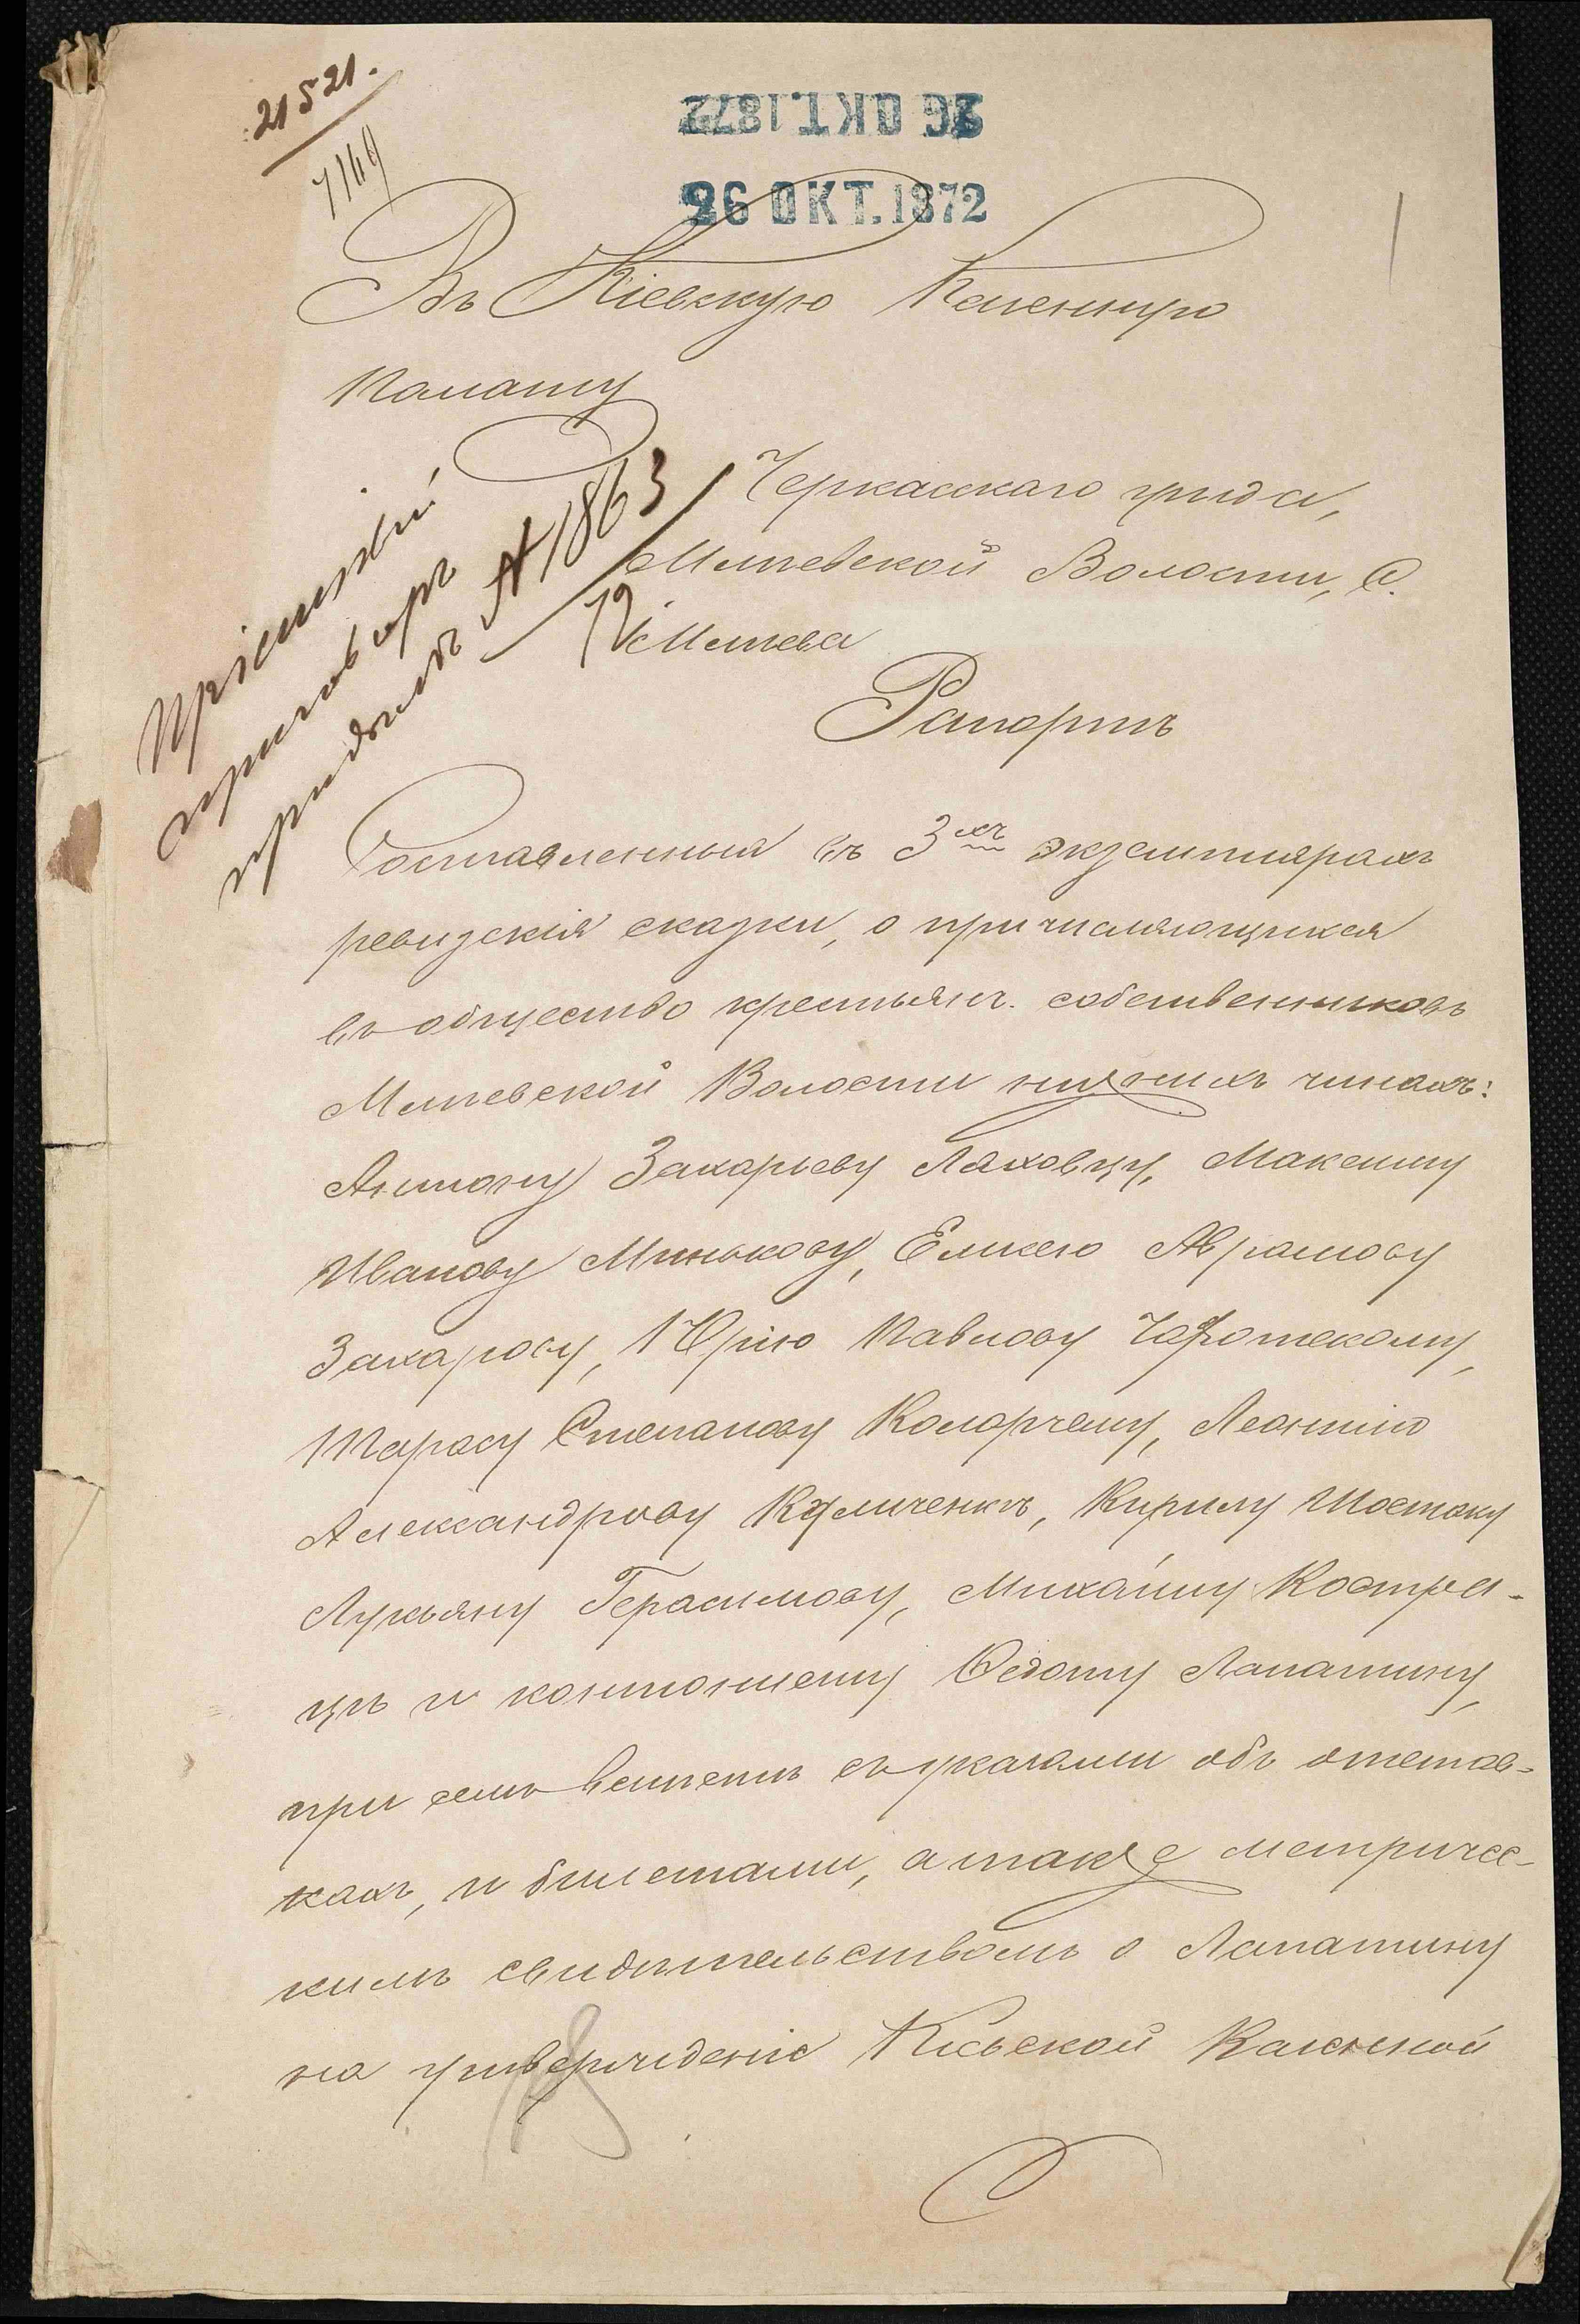 21521.
7169
26 ОКТ.1872
26 ОКТ.1872
Въ Кіевскую Казенную
Палату
Черкасскаго уѣзда,
Мліевской Волости, С.
Мліева
приговоръ
№ 1863
72
Рапортъ
Составленныя въ 3хъ экземплярахъ
ревизскія сказки, о причисляющихся
въ общество крестьянъ собственниковъ
Мліевской Волости нижнихъ чинахъ:
Антону Захарьеву Ляховцу, Максиму
Иванову Минькову, Елисею Аврамову
Захарову, Юрію Павлову
Тарасу Степанову Леонтію
Александрову Кирилу Шостаку
Лукьяну Герасимову, Михаилу Костри-
цѣ и кантонисту Федоту Лапатину,
при семъ вмѣстѣ съ указами объ отстав-
кахъ, и билетами, а также метричес-
кимъ свидѣтельствомъ о Лапатину
на утвержденіе Кіевской Казенной